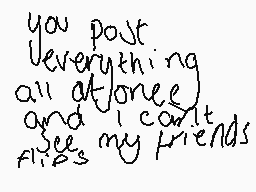 you post
everything
all at once
and i can't
see my friends
flips